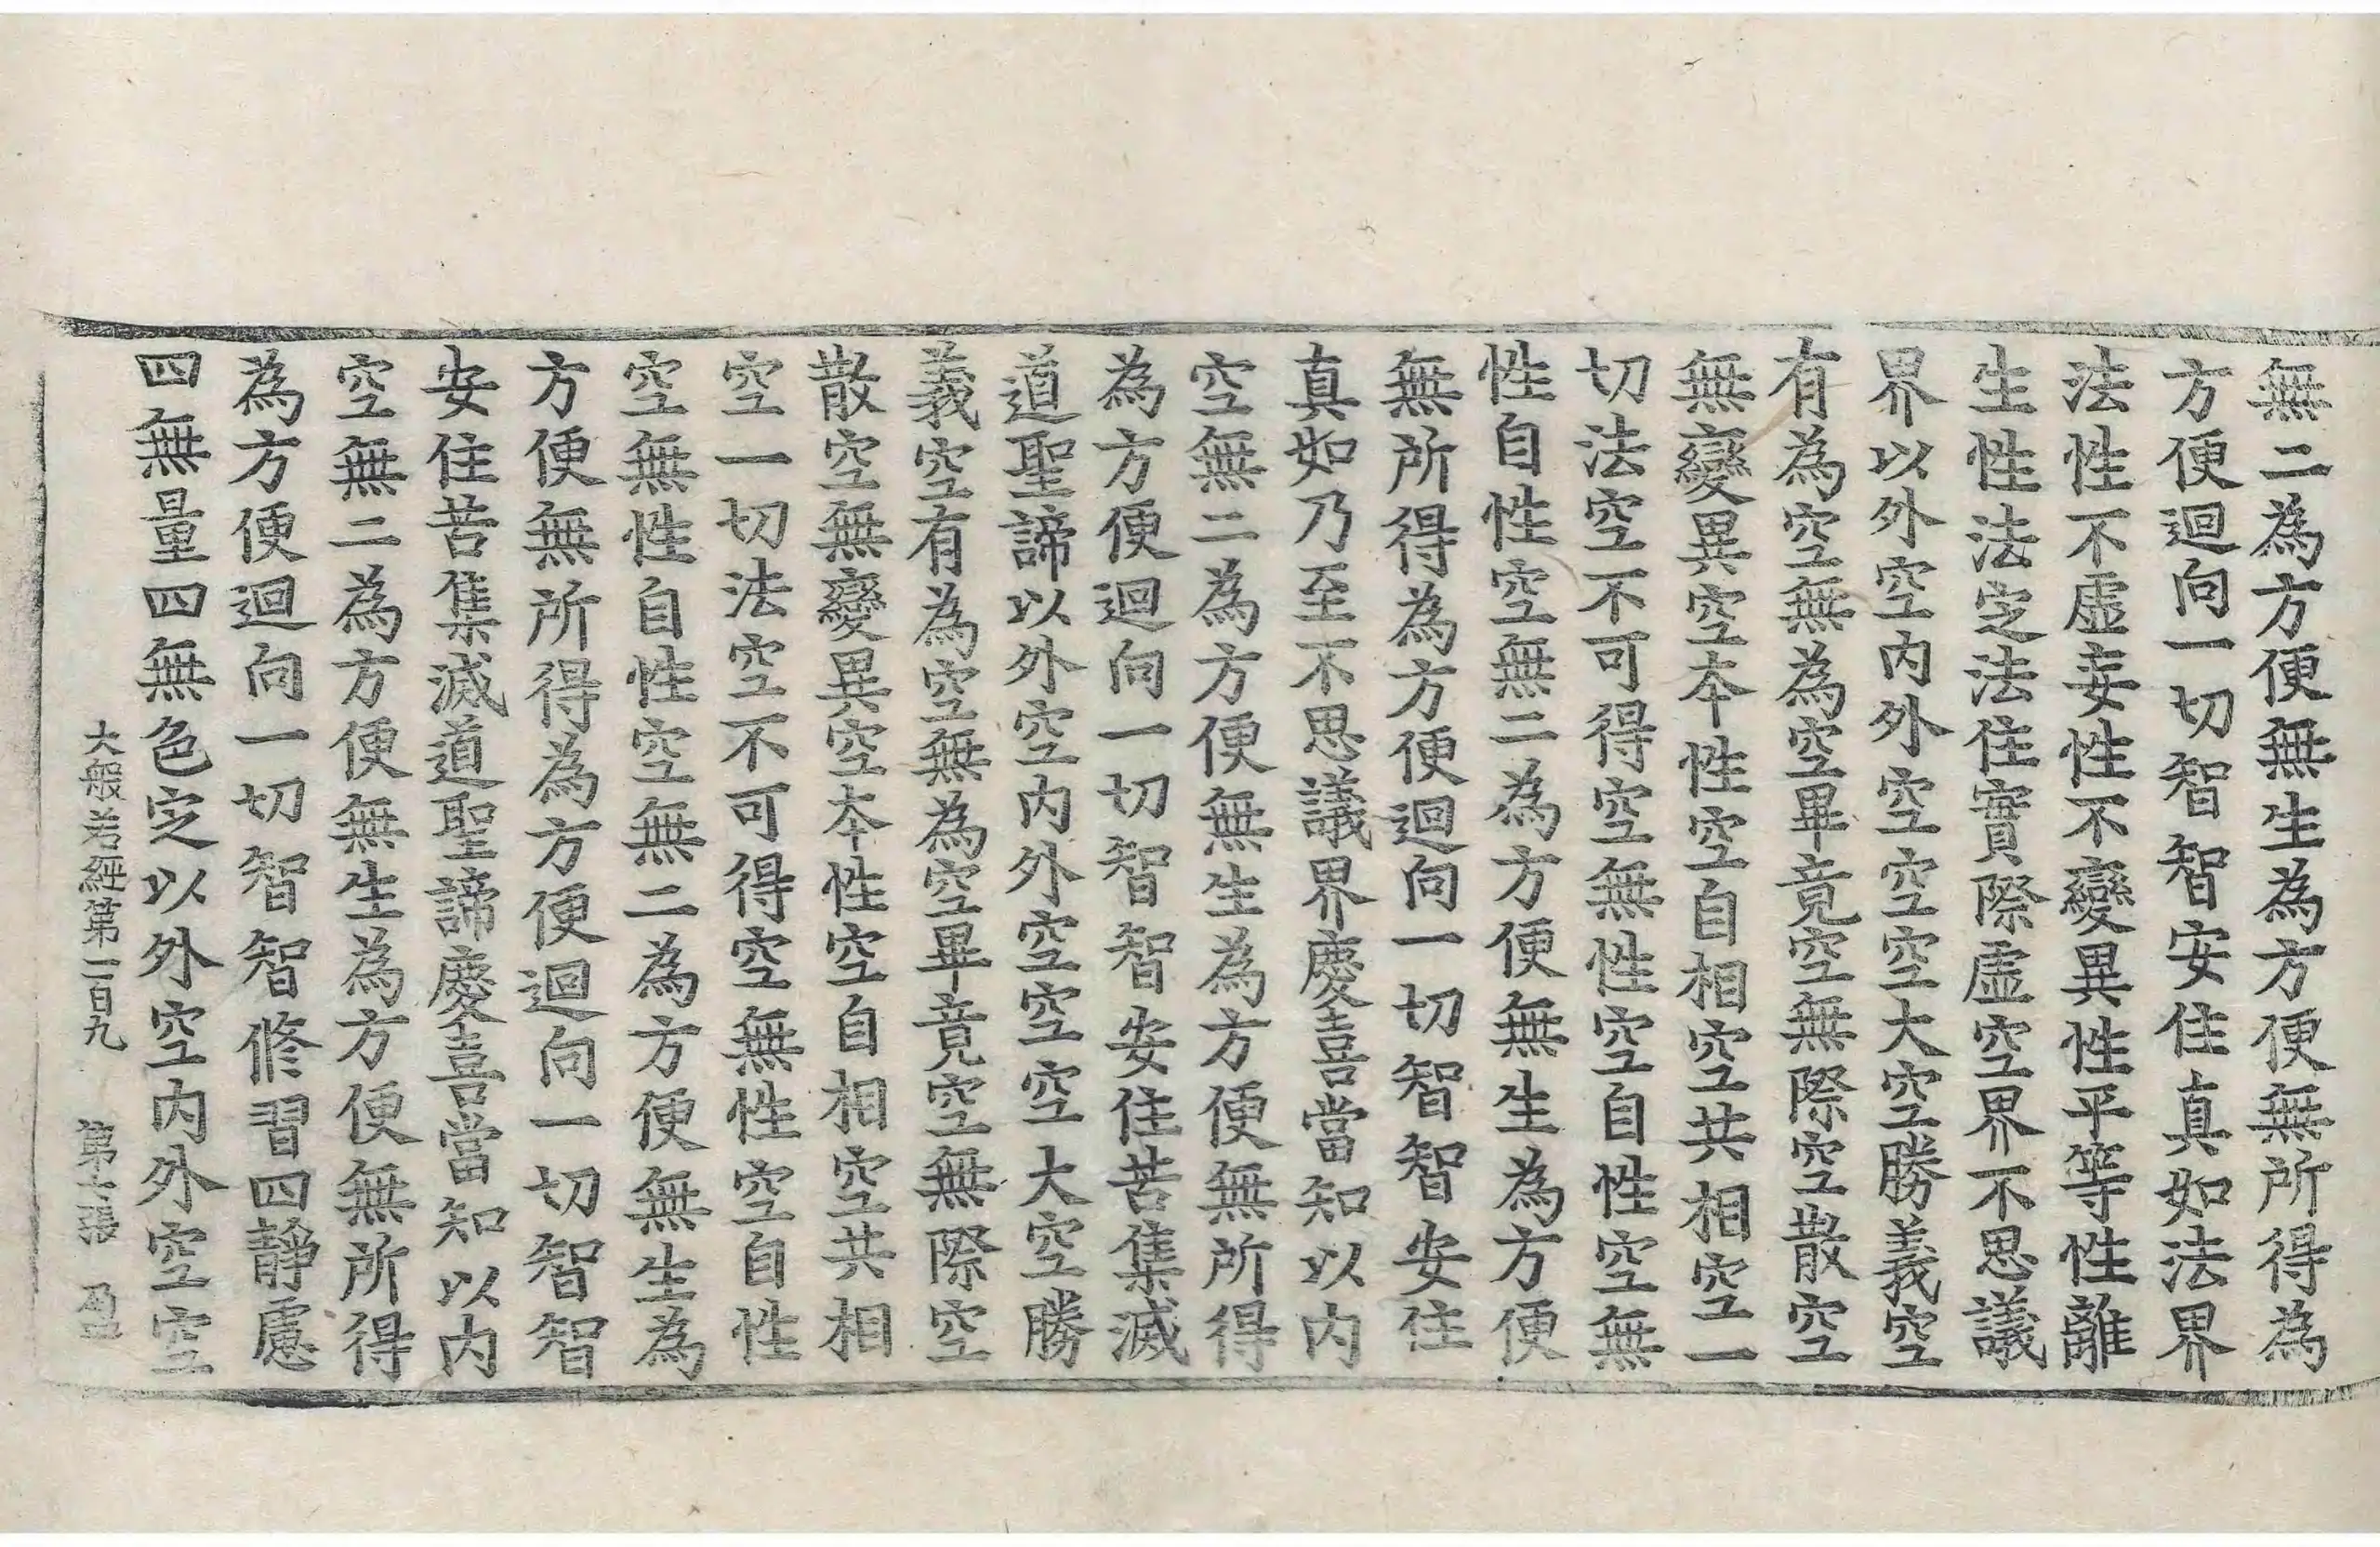 無二為方便無生為方便無所得為
方便迴向一切智智安住真如法界
法性不虛妄性不變異性平等性離
生性法定法住實際虛空界不思議
界以外空內外空空空大空勝義空
有為空無為空畢竟空無際空散空
無變異空本性空自相空共相空一
切法空不可得空無性空自性空無
性自性空無二為方便無生為方便
無所得為方便迴向一切智智安住
真如乃至不思議界慶喜當知以內
空無二為方便無生為方便無所得
為方便迴向一切智智安住苦集滅
道聖諦以外空內外空空空大空勝
義空有為空無為空畢竟空無際空
散空無變異空本性空自相空共相
空一切法空不可得空無性空自性
空無性自性空無二為方便無生為
方便無所得為方便迴向一切智智
安住苦集滅道聖諦慶喜當知以內
空無二為方便無生為方便無所得
為方便迴向一切智智修習四靜慮
四無量四無色定以外空內外空空
大般若經第一百九 第十張